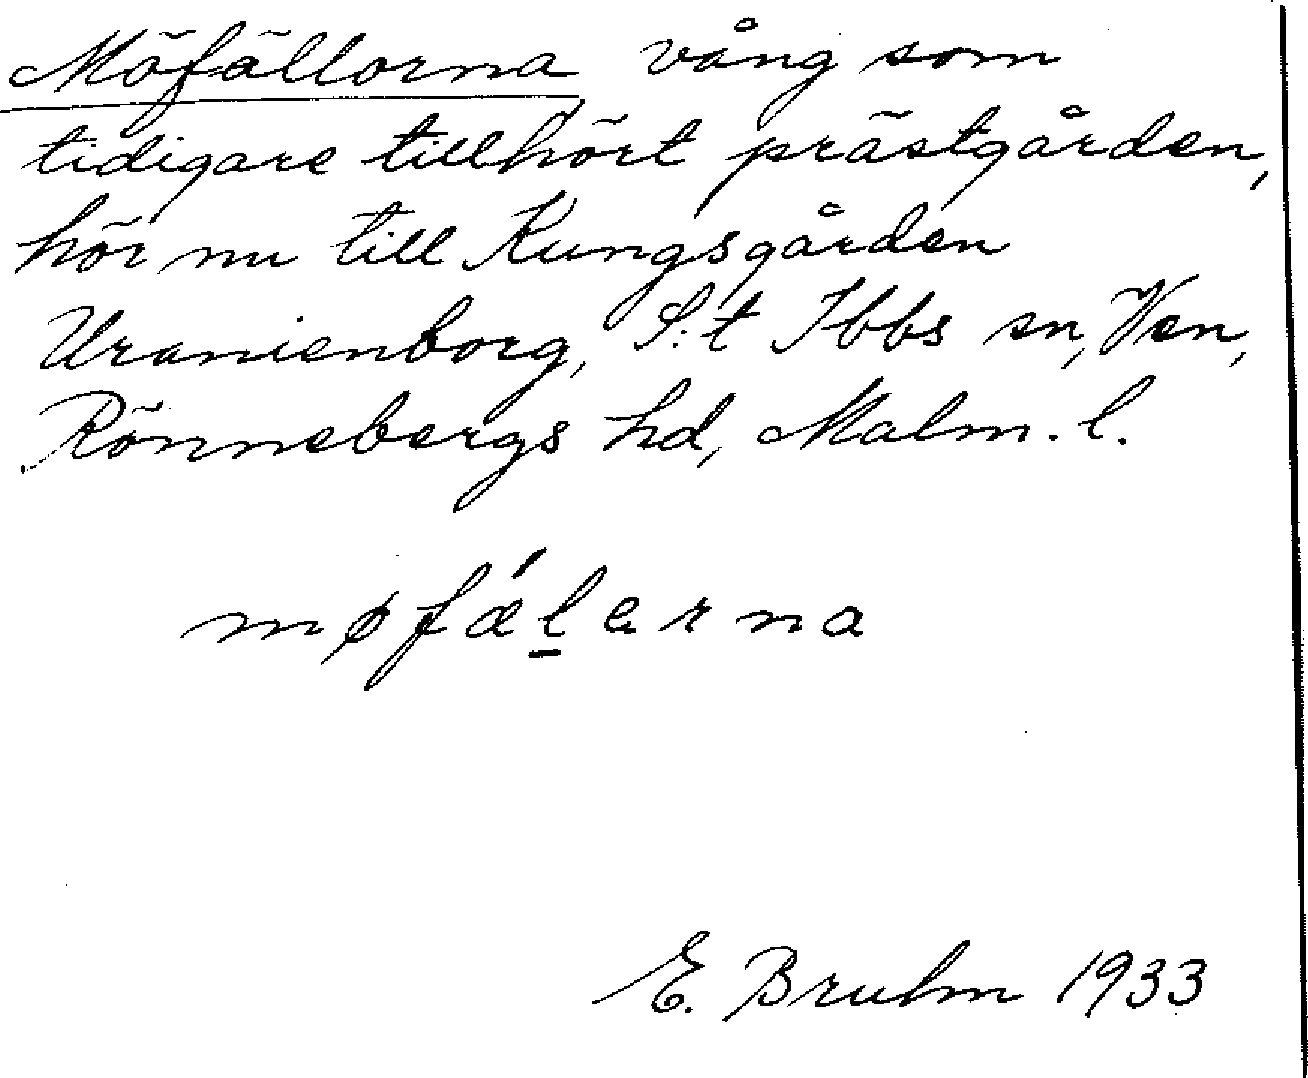 Möfällorna vång som
tidigare tillhört prästgården,
hör nu till Kungsgården
Uranienborg, S:t Ibbs sn, Ven,
Rönnebergs hd, Malm. l.
møfǽl̲ɐrna
E. Bruhn 1933